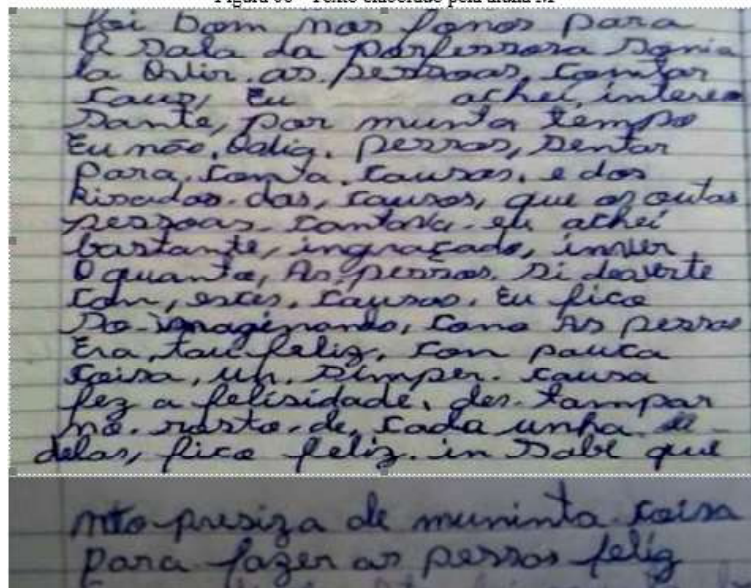 Figura 06 - Texto elaborado pela aluna M
foi bom, nos fonos para
A sala da porfessora sonia
la Ovir. as. pessoas, contar
caus, Eu achei, interes
sante, por munto tempo
Eu não. pessoas, sentar
para. conta. causos. e dar
Risadas. das, causos, que as outas
pessoas. contava. eu achei
bastante, ingraçado, inver
O quanto, As. pessoas. si deverte
con, estes, causos. Eu fico
so-imaginando, como As pessoas
Era, tau feliz, con pouca
coisa, un. simper. causo
fez a felisidade. des. tampar
no. rosto. de. cada unha
delas, fico feliz. in sabe que
não-presiza de muninta coisa
para fazer as pessoas feliz